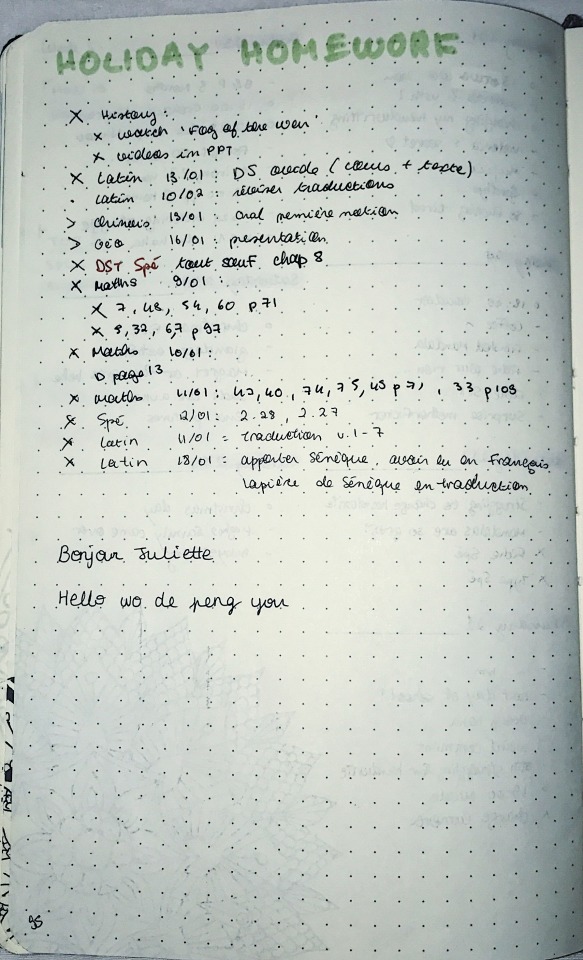 HOLIDAY HOMEWORK
x History:
x watch 'Fog of the war'
x videos in PPT
x Latin 13/01 : DS oracle (cours + texte)
. Latin 10/02 : réviser traductions
> chinois 13/01 : oral première notion
> Géo 16/01 : presentation
x DST Spé tout sauf chap 8
x Maths 9/01 :
x 7, 48, 54, 60 p71
x 5, 32, 67 p 97
x Maths 10/01 :
D page 13
x maths 11/01 : 43, 40, 74, 75, 45 p 71, 33 p 103
x Spé 12/01 : 2.28, 2.27
x Latin 11/01 = traduction v.1-7
x Latin 18/01 : apporter Sénèque, avoir lu en français
la pièce de Sénèque en traduction
Bonjour Juliette
Hello wo de peng you
95